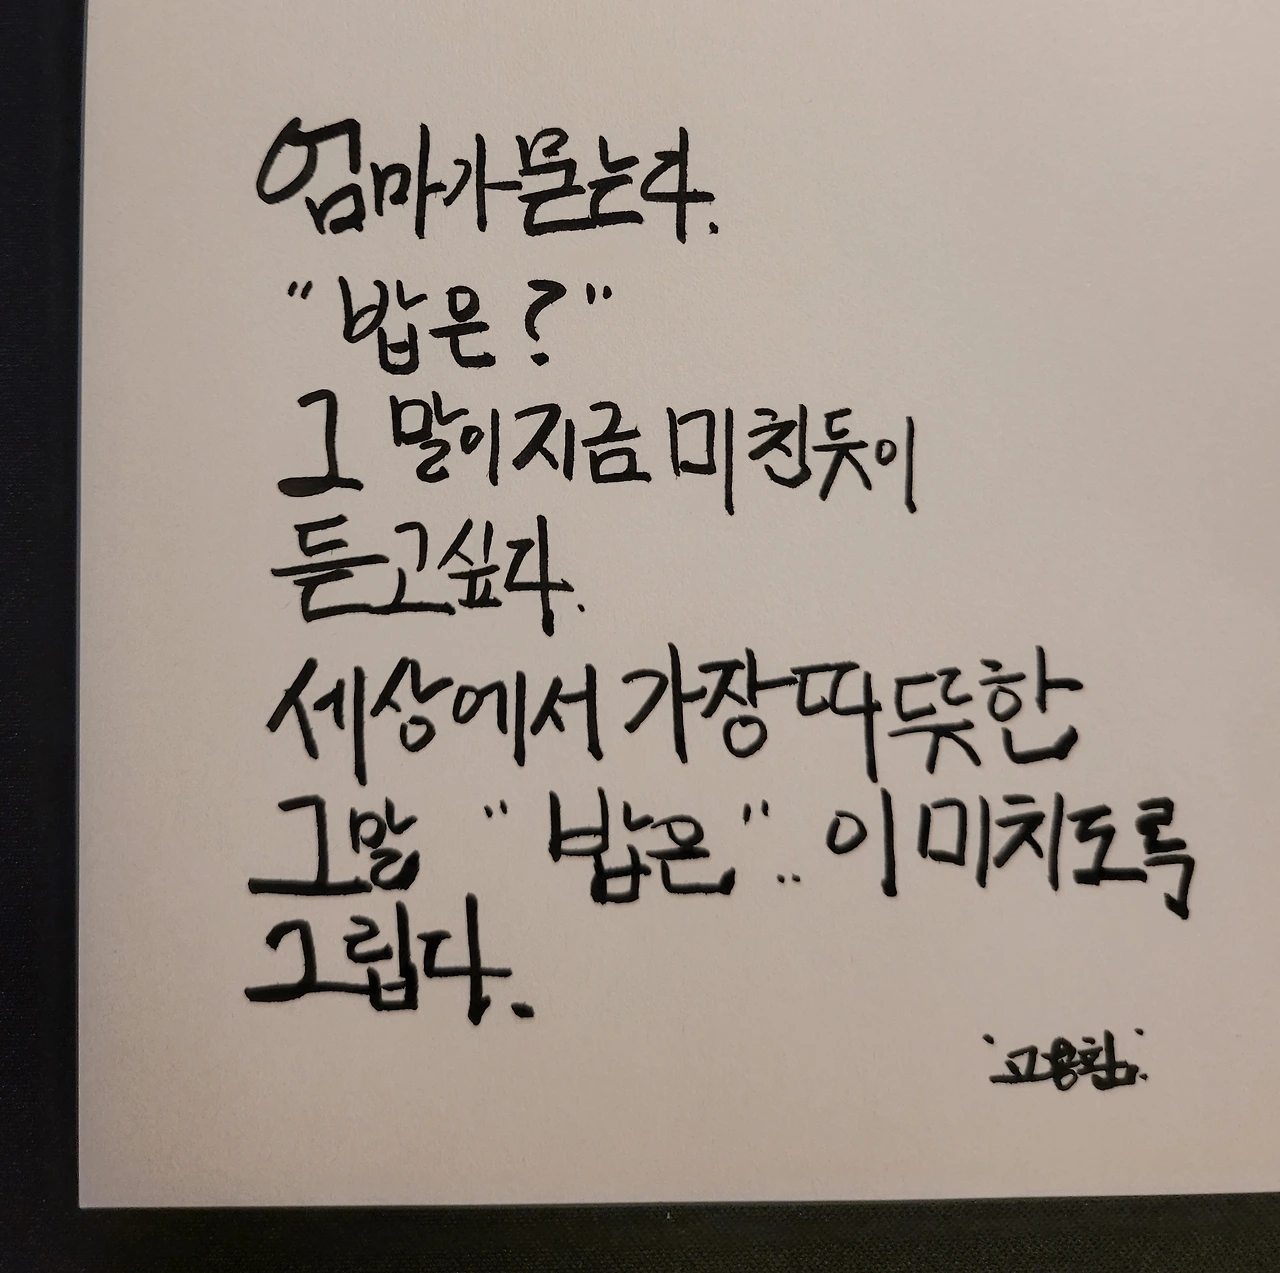 엄마가 묻는다.
"밥은?"
그 말이 지금 미친듯이
듣고싶다.
세상에서 가장 따뜻한
그말 "밥은".. 이 미치도록
그립다.
'고용함.'